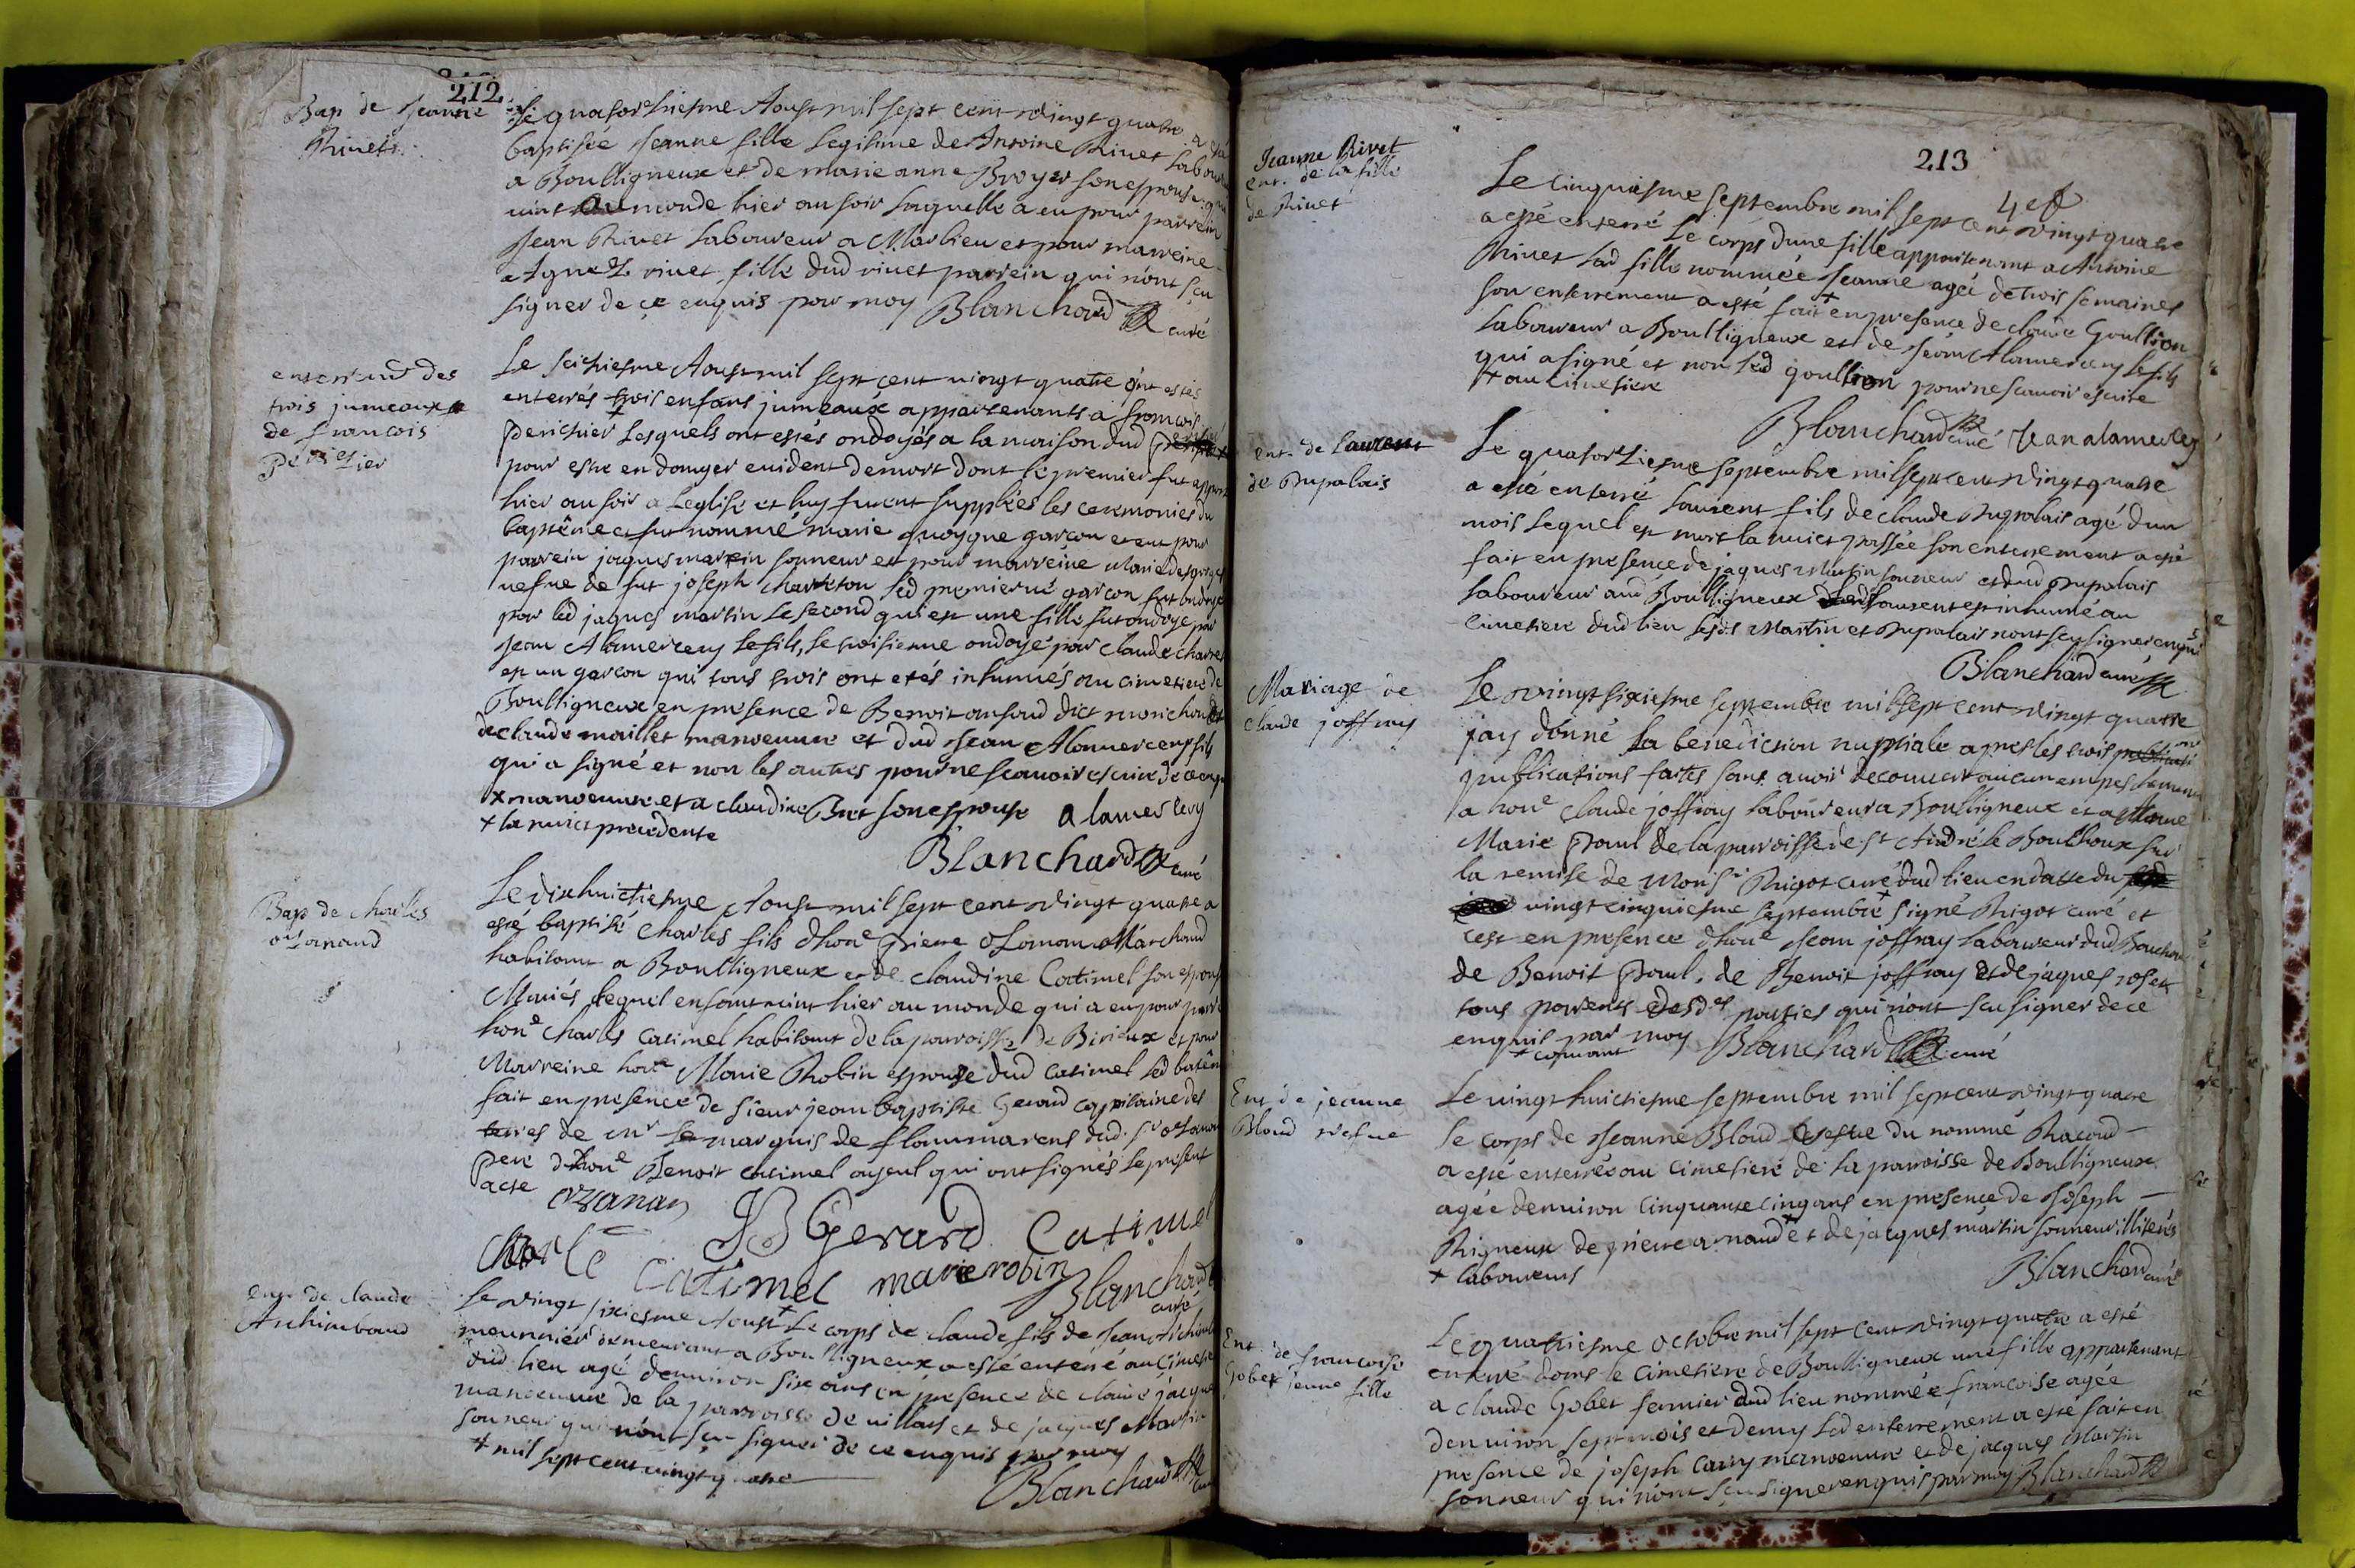 212
Bap de Jeanne
Rivet
Le quatorziesme Aoust mil sept cent vingt quatre a esté
baptisée Jeanne fille Legitime de Antoine Rivet Laboureur
a Boulligneux et de marie anne Broyer son espouse qui
vint au monde hier au soir laquelle a eu pour parrein
Jean Rivet Laboureur a Marlieu et pour marreine
Agnez rivet fille dud rivet parrein qui n'ont sçu
signer de ce enquis par moy Blanchard curé
enterremt des
trois jumeaux
de francois
Perichier
Le seiziesme Aoust mil sept cent vingt quatre ont estés
enterrés trois enfans jumeaux appartenants a francois
Perichier + Lesquels ont estés ondoyés a la maison dud
pour estre en danger evident de mort dont le premier fut apporté
hier au soir a Leglise et luy furent supplées les ceremonies du
baptême et fut nommé marie quoyque garcon et eut pour
parrein jaques martin sonneur et pour marreine Marie
vefve de fut joseph charreton led premier né garcon fut ondoyé
par led jaques martin le second qui est une fille fut ondoyé par
Jean Alamercery le fils, le troisieme ondoyé par Claude
est un garcon qui tous trois ont etés inhumés au cimetiere de
Boulligneux en presence de Benoit dict
de claude maillet manoeuvre et dud Jean Alamercery fils
qui a signé et non les autres pour ne scavoir escrire de ce enquis
x manoeuvre et a claudine Bret son espouse alamercery
+ la nuict precedente
Blanchard curé
Bap de charles
ozanand
Le dix huictiesme Aoust mil sept cent vingt quatre a
esté baptisé Charles fils d'hone pierre ozanan Marchand
habitant a Boulligneux et de claudine Catimel son espouse
Mariés, lequel enfant vint hier au monde qui a eu pour parrein
hone Charles catimel habitant de la parroisse de Birieux et pour
Marreine hone Marie Robin espouse dud catimel led batême
fait en presence de sieur jean baptiste Gerard capitaine des
terres de mr le marquis de flammarens dud. sr ozanan
pere d'hone Benoit catimel ayeul qui ont signés le present
acte ozanan
JB Gerard Catimel
Charle Catimel marie robin Blanchard
curé
ent. de claude
Archimbaud
Le vingt sixiesme Aoust + Le corps de claude fils de Jean
meunnier demeurant a Boulligneux a esté enterré au cimetiere
dud lieu agé denviron six ans en presence de claude jacques
manoeuvre de la parroisse de villars et de jacques Martin
sonneur qui n'ont sçu signer de ce enquis par moy
+ mil sept cent vingt quatre
Blanchard curé
213
Jeanne Rivet
ent. de la fille
de Rivet
4 e f
Le cinquiesme septembre mil sept cent vingt quatre
a esté enterré Le corps dune fille appartenant a Antoine
Rivet lad fille nommée Jeanne agée de trois semaines
son enterrement a esté fait + en presence de claude Goullion
Laboureur a Boulligneux et de Jean Alamercery le fils
qui a signé et non led goullion pour ne scavoir escrire
+ au cimetiere
Blanchard curé Jean alamercery
ent. de Laurent
de Dupalais
Le quatorziesme septembre mil sept cent vingt quatre
a esté enterré Laurent fils de claude Dupalais agé dun
mois lequel est mort la nuict passée son enterrement a esté
fait en presence de jaques Martin sonneur et dud Dupalais
laboureur aud Boulligneux Laurent est inhumé au
cimetiere dud lieu lesds Martin et Dupalais n'ont sçu signer enquis
Blanchard curé
Mariage de
claude joffray
Le vingt sixiesme septembre mil sept cent vingt quatre
jay donné la benediction nuptiale apres les trois
publications faites sans avoir decouvert aucun empeschement
a hone Claude joffray laboureur a Boulligneux et a
Marie Paul de la parroisse de st André le Bouchoux sur
la remise de Monsr Rigot curé dud lieu en datte du
vingt cinquiesme septembre + signé Rigot curé et
cest en presence d'hone Jean joffray laboureur dud
de Benoit Paul, de Benoit joffray et de jaques
tous parents desdes parties qui n'ont sçu signer de ce
enquis par moy Blanchard curé
+ courant
Ent de jeanne
Blaud vefve
Le vingt huictiesme septembre mil sept cent vingt quatre
le corps de Jeanne Blaud vefve du nommé Racoud
a esté enterrés au cimetiere de la parroisse de Boulligneux
agée denviron cinquante cinq ans en presence de Joseph
Rigneux de pierre arnaud + et de jacques martin sonneur illiterés
+ laboureurs
Blanchard curé
Ent. de francoise
Gobet jeune fille
Le quatriesme octobre mil sept cent vingt quatre a esté
enterré dans le cimetiere de Boulligneux une fille appartenant
a claude Gobet fermier dud lieu nommée francoise agée
denviron sept mois et demy led enterrement a esté fait en
presence de joseph carry manoeuvre et de jacques Martin
sonneur qui n'ont sçu signer enquis par moy Blanchard